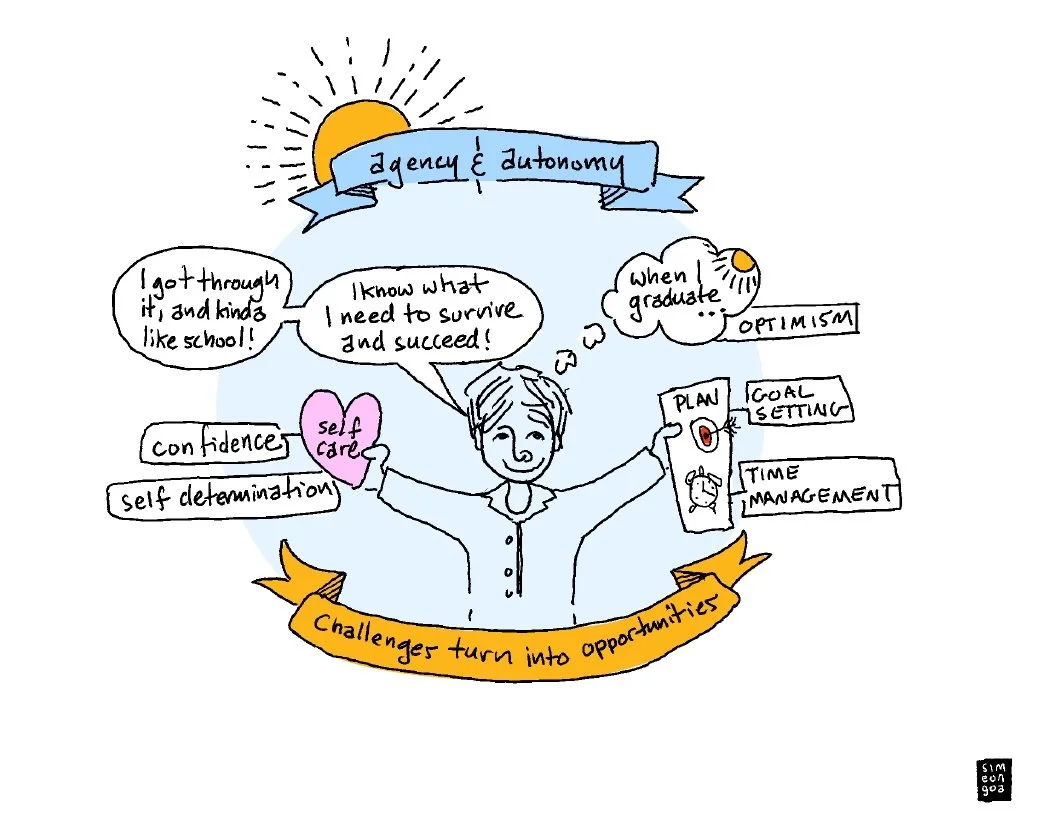 agency & autonomy
I got through
it, and kinda
like school!
I know what
I need to survive
and succeed!
when I
graduate...
OPTIMISM
self
care
confidence
self determination
PLAN
GOAL
SETTING
TIME
MANAGEMENT
Challenges turn into opportunities
sim
eon
goa